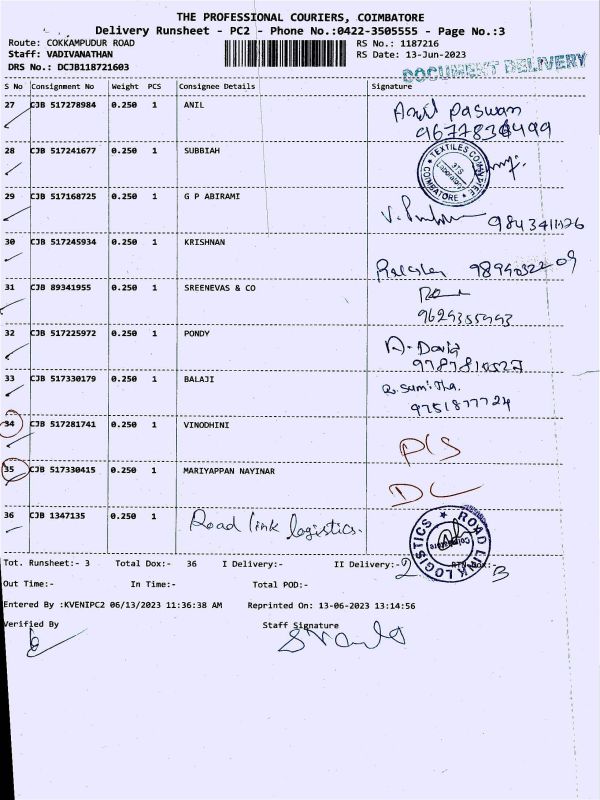 THE PROFESSIONAL COURIERS, COIMBATORE
Delivery Runsheet - PC2 - Phone No.:0422-3505555 - Page No.:3
Route: COKKAMPUDUR ROAD RS No.: 1187216
Staff: VADIVANATHAN RS Date: 13-Jun-2023
DRS No.: DCJB118721603 DOCUMENT DELIVERY
S No Consignment No Weight PCS Consignee Details Signature
27 CJB 517278984 0.250 1 ANIL Anil Paswan
28 CJB 517241677 0.250 1 SUBBIAH TEXTILES COMMITTEE COIMBATORE
29 CJB 517168725 0.250 1 G P ABIRAMI
30 CJB 517245934 0.250 1 KRISHNAN
31 CJB 89341955 0.250 1 SREENEVAS & CO
32 CJB 517225972 0.250 1 PONDY A. David
33 CJB 517330179 0.250 1 BALAJI Sumitha.
9751877724
34 CJB 517281741 0.250 1 VINODHINI P/S
35 CJB 517330415 0.250 1 MARIYAPPAN NAYINAR DL
36 CJB 1347135 0.250 1 Road link logistics. ROAD LINK LOGISTICS
Tot. Runsheet:- 3 Total Dox:- 36 I Delivery:- II Delivery:- 2 RTN Dox:- 3
Out Time:- In Time:- Total POD:-
Entered By :KVENIPC2 06/13/2023 11:36:38 AM Reprinted On: 13-06-2023 13:14:56
Verified By Staff Signature